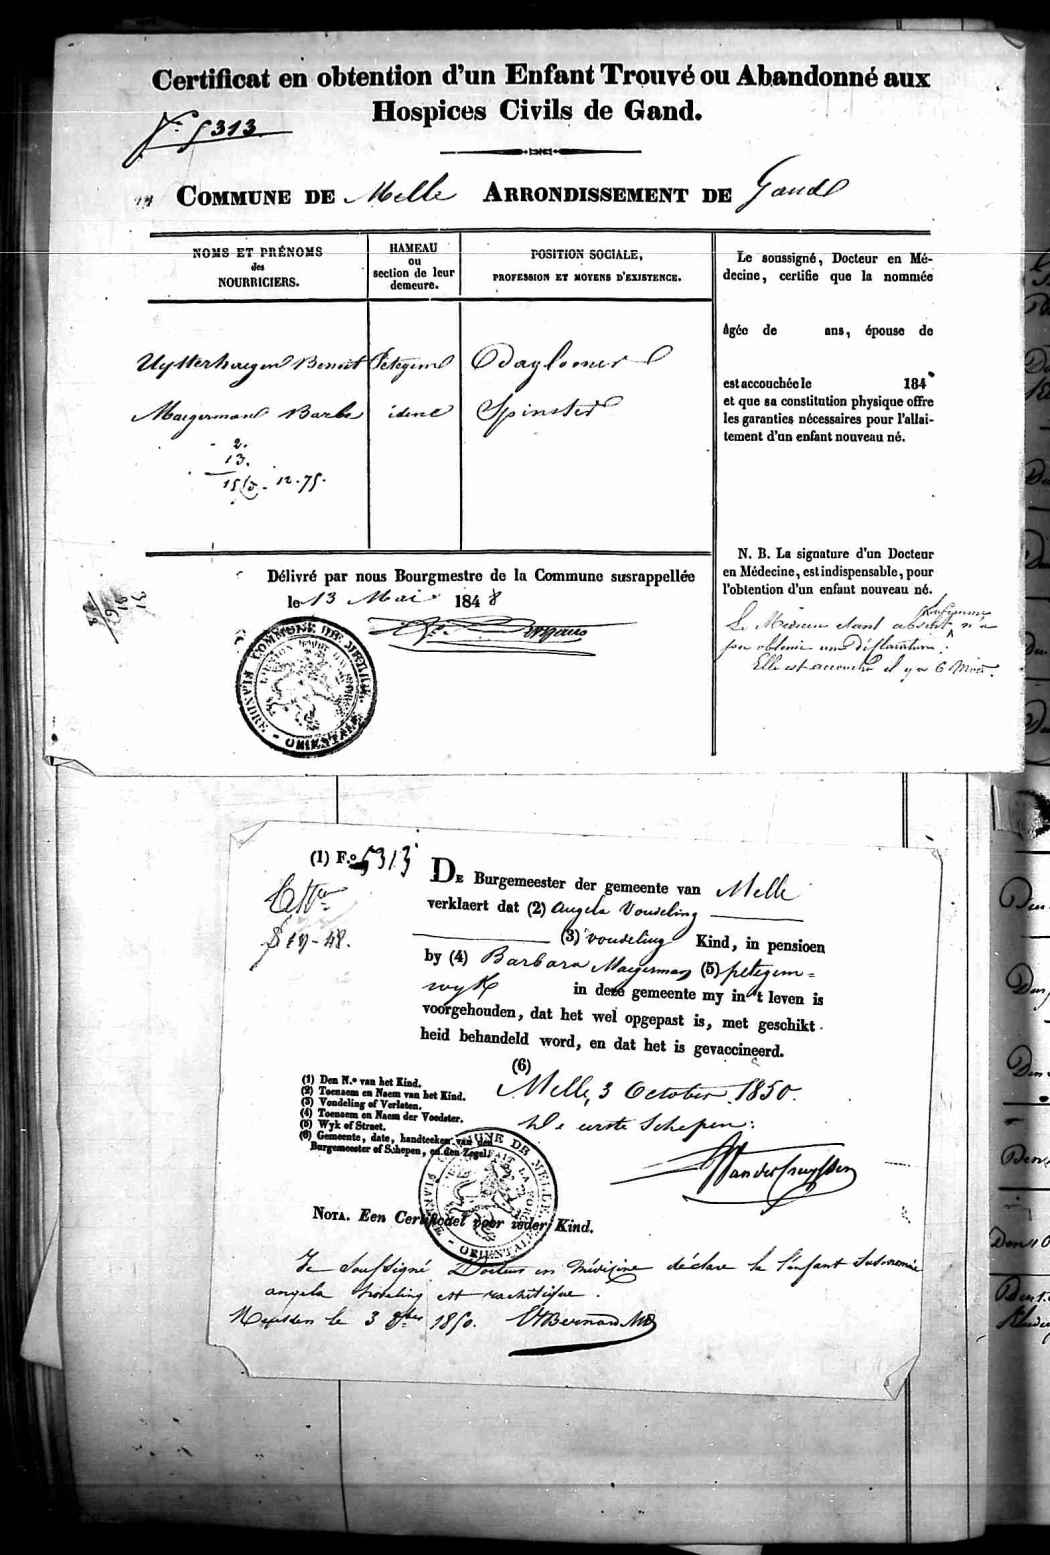 Certificat en obtention d'un Enfant Trouvé ou Abandonné aux
Hospices Civils de Gand.
N° 5313
COMMUNE DE Melle ARRONDISSEMENT DE Gand
NOMS ET PRÉNOMS
des
NOURRICIERS.
HAMEAU
ou
section de leur
demeure.
POSITION SOCIALE,
PROFESSION ET MOYENS D'EXISTENCE.
Uytterhaegen Benoit Petegem Dagloner
Maegerman Barbe idem Spinster
2.
13.
15/5. 12.75.
Le soussigné, Docteur en Mé-
decine, certifie que la nommée
âgée de ans, épouse de
est accouchée le 184
et que sa constitution physique offre
les garanties nécessaires pour l'allai-
tement d'un enfant nouveau né.
N. B. La signature d'un Docteur
en Médecine, est indispensable, pour
l'obtention d'un enfant nouveau né.
Le Médecin étant absent n'a
pu obtenir une déclaration.
Elle est accouché il y a 6 Mois.
Délivré par nous Bourgmestre de la Commune susrappellée
le 13 Mai 1848
COMMUNE DE MELLE
FLANDRE - ORIENTALE
(1) F.o 5313
DE Burgemeester der gemeente van Melle
verklaert dat (2) Angela Vondeling
(3) vondeling Kind, in pensioen
by (4) Barbara Maegerman (5) petegem=
wyk in deze gemeente my in't leven is
voorgehouden, dat het wel opgepast is, met geschikt
heid behandeld word, en dat het is gevaccineerd.
(6)
Melle, 3 October 1850.
De eerste Schepen:
Vander Cruyssen
(1) Den N.o van het Kind.
(2) Toenaem en Naem van het Kind.
(3) Vondeling of Verlaten.
(4) Toenaem en Naem der Voedster.
(5) Wyk of Straet.
(6) Gemeente, date, handteeken van den
Burgemeester of Schepen, en den Zegel.
COMMUNE DE MELLE
FLANDRE - ORIENTALE
NOTA. Een Certificaet voor ieder Kind.
Je soussigné Docteur en Médecine déclare que l'enfant susnommé
angela Vondeling est rachitique.
Heusden le 3 8bre 1850. Bernard MD